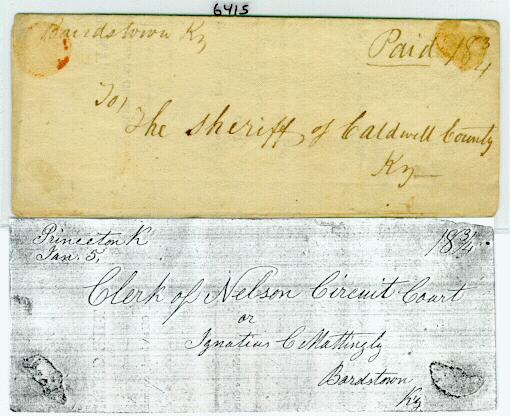 6415
Bairdstown Ky
Paid 18 3/4
To,
The Sheriff of Caldwell County
Ky
Princeton K
Jan. 5,
18 3/4
Clerk of Nelson Circuit Court
or
Ignatius C Mattingly
Bardstown
Ky